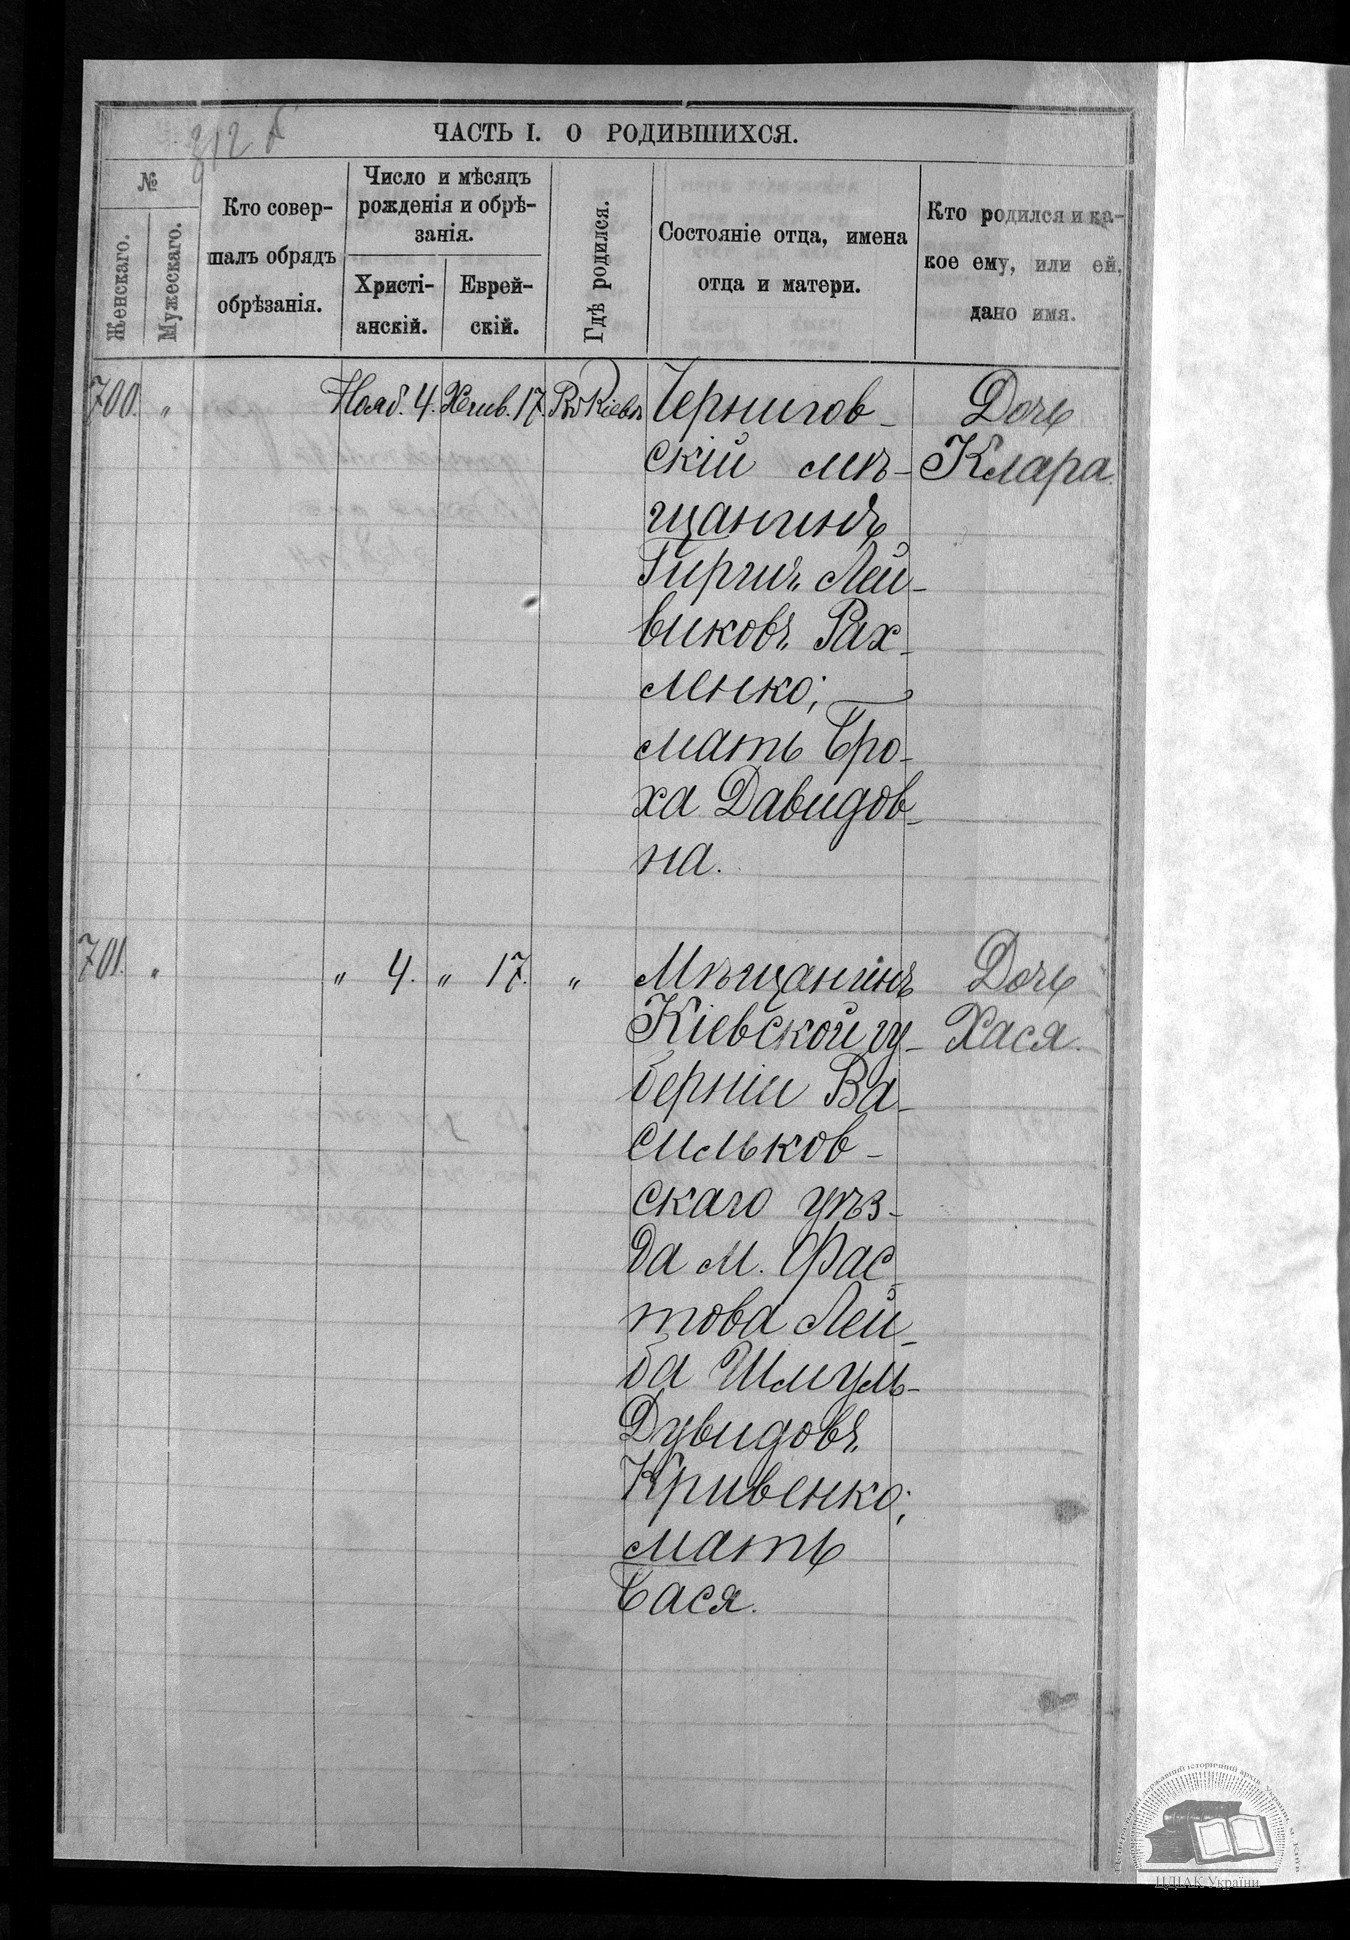 812 б
ЧАСТЬ I. О РОДИВШИХСЯ.
№
Женскаго.
Мужескаго.
Кто совер-
шалъ обрядъ
обрѣзанія.
Число и мѣсяцъ
рожденія и обрѣ-
занія.
Христі-
анскій.
Еврей-
скій.
Гдѣ родился.
Состояніе отца, имена
отца и матери.
Кто родился и ка-
кое ему, или ей,
дано имя.
700. „ Нояб. 4. Хешв. 17. Въ Кіевѣ Чернигов- Дочь
скій мѣ- Клара.
щанинъ
Гиршъ Лей-
виковъ Рах-
ленко;
мать Бро-
ха Давидов-
на.
701. „ „ 4. „ 17. „ Мѣщанинъ Дочь
Кіевской гу- Хася.
берніи Ва-
сильков-
скаго уѣз-
да м. Фас-
това Лей-
ба Шмуль-
Дувидовъ
Кривенко;
мать
Бася.
ЦДІАК України